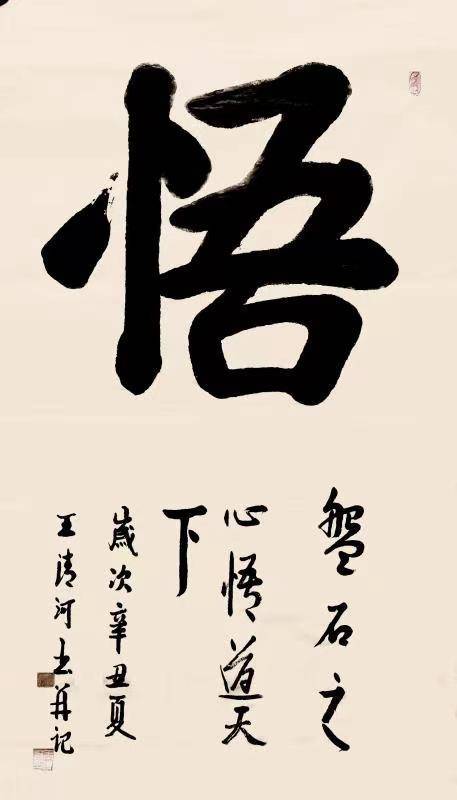 悟
盤石之
心悟道天
下
歲次辛丑夏
王清河书并记